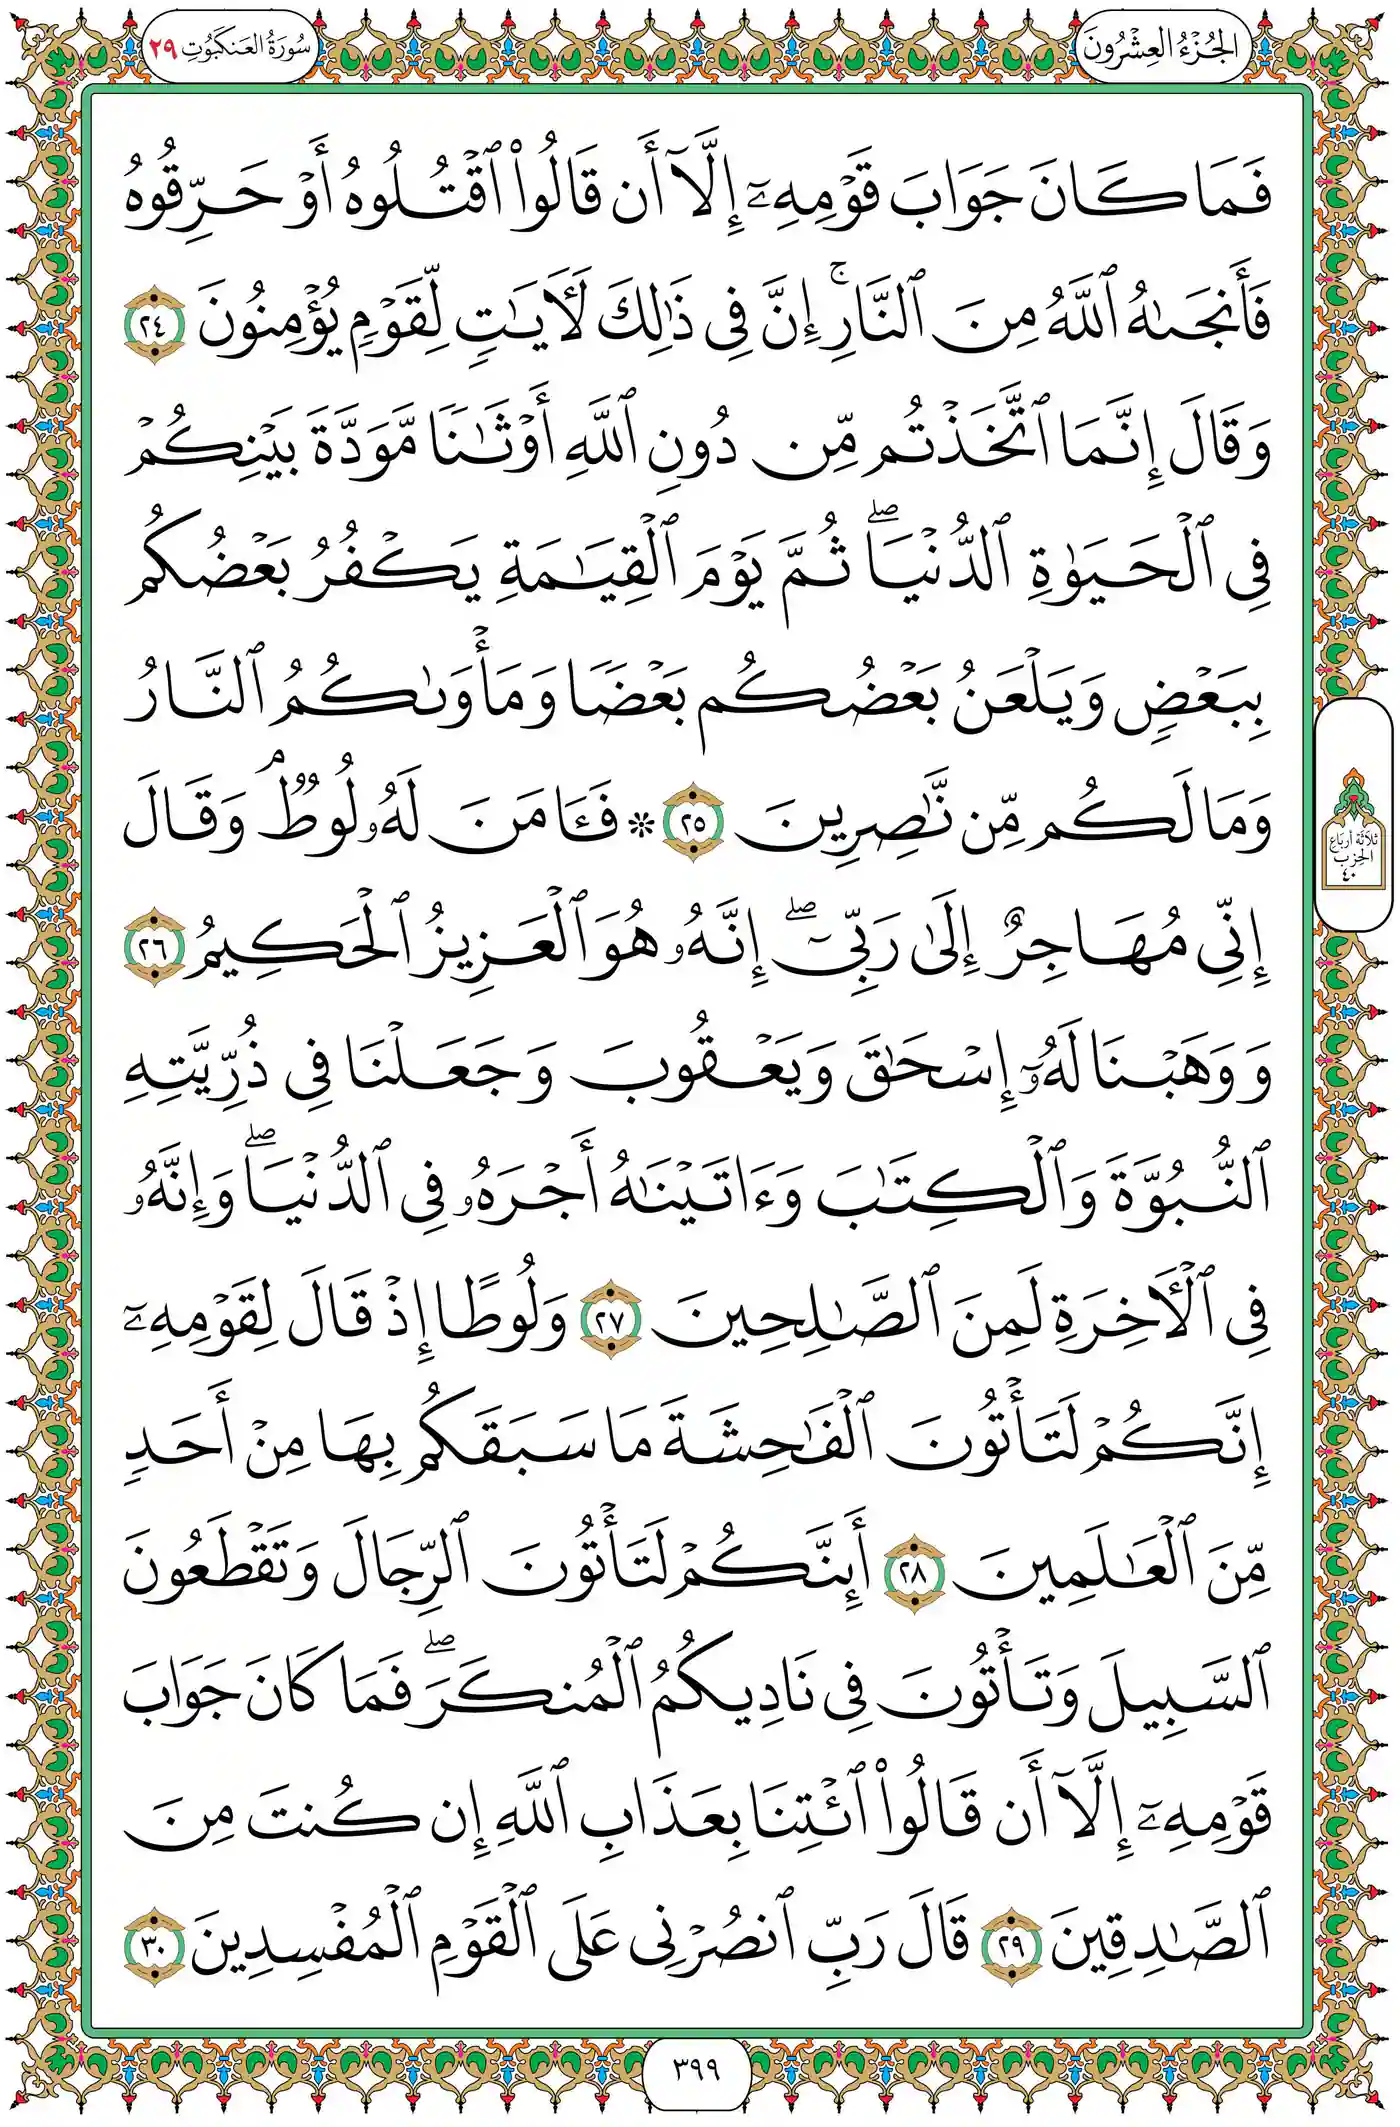 الجُزْءُ العِشْرُونَ
سُورَةُ العَنكَبُوتِ ٢٩
فَمَا كَانَ جَوَابَ قَوْمِهِۦٓ إِلَّآ أَن قَالُوا۟ ٱقْتُلُوهُ أَوْ حَرِّقُوهُ
فَأَنجَىٰهُ ٱللَّهُ مِنَ ٱلنَّارِ ۚ إِنَّ فِى ذَٰلِكَ لَـَٔايَٰتٍ لِّقَوْمٍ يُؤْمِنُونَ ٢٤
وَقَالَ إِنَّمَا ٱتَّخَذْتُم مِّن دُونِ ٱللَّهِ أَوْثَٰنًا مَّوَدَّةَ بَيْنِكُمْ
فِى ٱلْحَيَوٰةِ ٱلدُّنْيَا ۖ ثُمَّ يَوْمَ ٱلْقِيَٰمَةِ يَكْفُرُ بَعْضُكُم
بِبَعْضٍ وَيَلْعَنُ بَعْضُكُم بَعْضًا وَمَأْوَىٰكُمُ ٱلنَّارُ
وَمَا لَكُم مِّن نَّٰصِرِينَ ٢٥ * فَـَٔامَنَ لَهُۥ لُوطٌ ۘ وَقَالَ
إِنِّى مُهَاجِرٌ إِلَىٰ رَبِّىٓ ۖ إِنَّهُۥ هُوَ ٱلْعَزِيزُ ٱلْحَكِيمُ ٢٦
وَوَهَبْنَا لَهُۥٓ إِسْحَٰقَ وَيَعْقُوبَ وَجَعَلْنَا فِى ذُرِّيَّتِهِ
ٱلنُّبُوَّةَ وَٱلْكِتَٰبَ وَءَاتَيْنَٰهُ أَجْرَهُۥ فِى ٱلدُّنْيَا ۖ وَإِنَّهُۥ
فِى ٱلْـَٔاخِرَةِ لَمِنَ ٱلصَّٰلِحِينَ ٢٧ وَلُوطًا إِذْ قَالَ لِقَوْمِهِۦٓ
إِنَّكُمْ لَتَأْتُونَ ٱلْفَٰحِشَةَ مَا سَبَقَكُم بِهَا مِنْ أَحَدٍ
مِّنَ ٱلْعَٰلَمِينَ ٢٨ أَئِنَّكُمْ لَتَأْتُونَ ٱلرِّجَالَ وَتَقْطَعُونَ
ٱلسَّبِيلَ وَتَأْتُونَ فِى نَادِيكُمُ ٱلْمُنكَرَ ۖ فَمَا كَانَ جَوَابَ
قَوْمِهِۦٓ إِلَّآ أَن قَالُوا۟ ٱئْتِنَا بِعَذَابِ ٱللَّهِ إِن كُنتَ مِنَ
ٱلصَّٰدِقِينَ ٢٩ قَالَ رَبِّ ٱنصُرْنِى عَلَى ٱلْقَوْمِ ٱلْمُفْسِدِينَ ٣٠
ثلاثة أرباع
الحزب
٤٠
٣٩٩